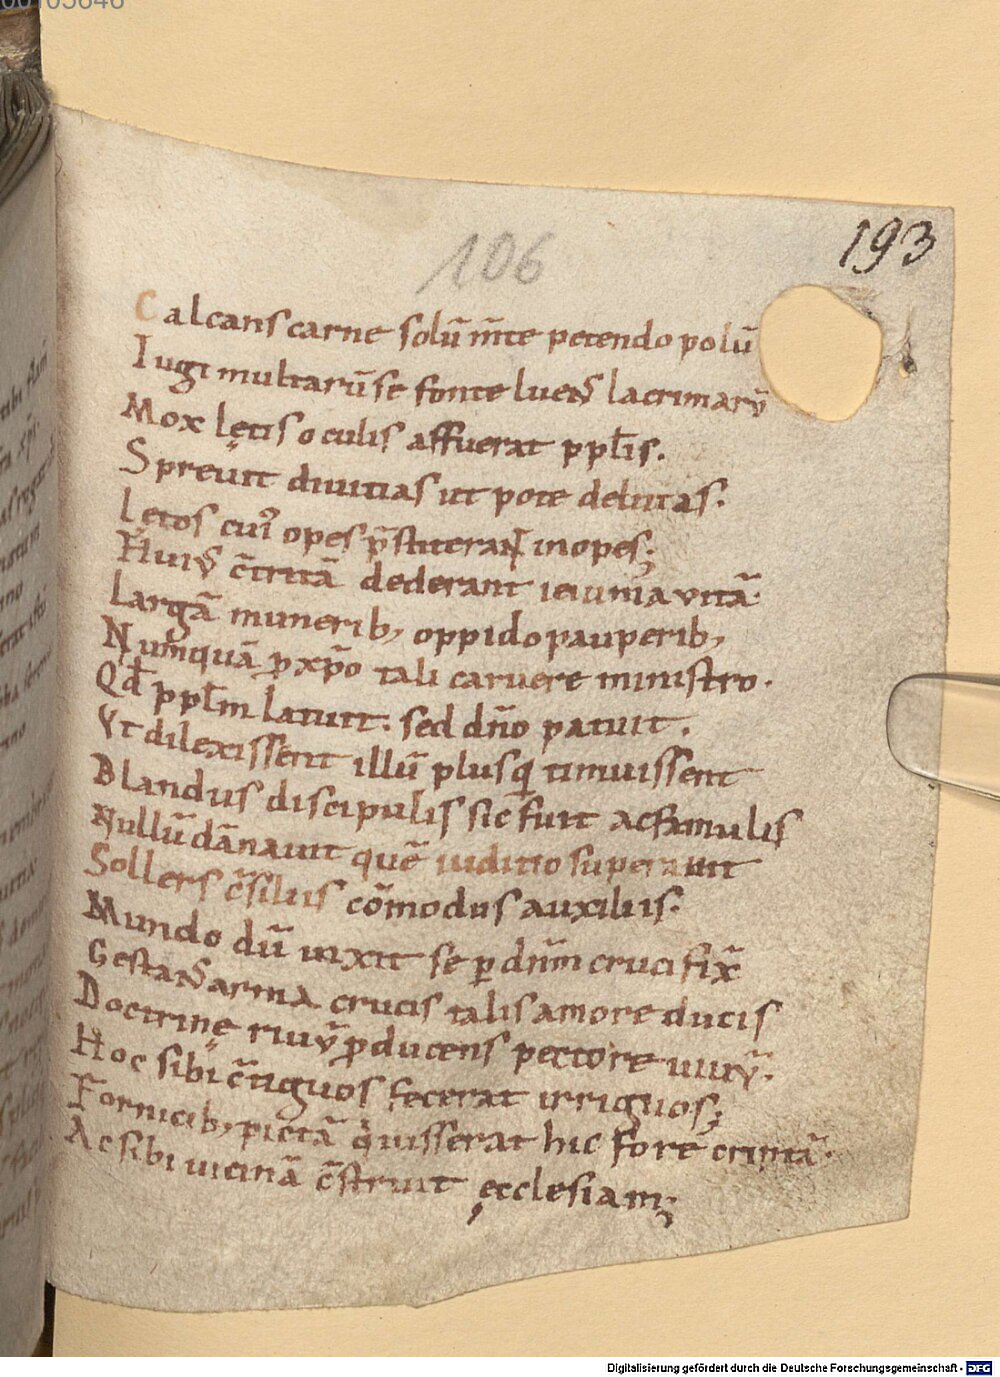 106
193
Calcans carne solū m̄te petendo polū
Iugi multarū se fonte luens lacrimarū
Mox lętis oculis affuerat ppłis.
Spreuit diuitias ut pote delutas.
Lętos cui᷒ opes p̄stiterant inopes;
Hui᷒ c̄tritā dederant ieiunia vitā.
Largā munerib, oppido pauperib,
Numquā ꝑ xp̄o tali caruere ministro.
Qđ ppłm latuit. sed dn̄o patuit.
Vt dilexissent illū plus q̄ timuissent
Blandus discipulis sic fuit ac famulis
Nullū dānauit quē iuditio superauit
Sollers c̄siliis cōmodus auxiliis.
Mundo dū uixit se ꝑ dn̄m crucifixā
Gestans arma crucis talis amore ducis
Doctrinę riuū ꝓducens pectore uiuū.
Hoc sibi c̄tiguos fecerat irriguos;
Fornicib, pictā
hic fore
Ac sibi uicinā c̄struit ęcclesiam;
Digitalisierung gefördert durch die Deutsche Forschungsgemeinschaft - DFG